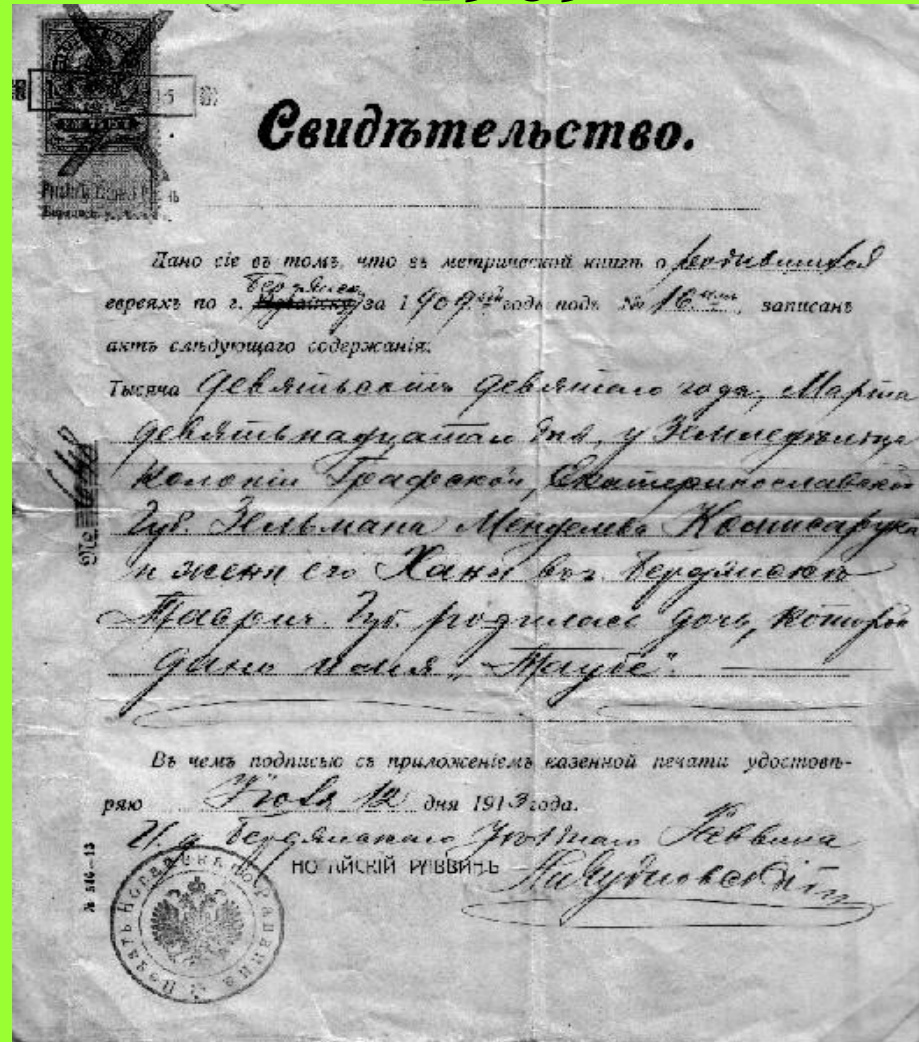 Свидѣтельство.
Дано сіе въ томъ, что въ метрической книгѣ о родившихся
Бердянску
евреяхъ по г. Ногайску за 1909 годъ подъ № 16, записанъ
актъ слѣдующаго содержанія:
Тысяча девятьсотъ девятаго года, Марта
девятнадцатаго дня, у Земледѣльца
Колоніи Графской, Екатеринославской
Губ. Зельмана Менделева Комисарука
и жены его Ханы въ г. Бердянскѣ
Таврич. Губ. родилась дочь, которой
дано имя „Таубе“.
№
Въ чемъ подписью съ приложеніемъ казенной печати удостовѣ-
ряю Іюля 12 дня 1913 года.
И. д. Бердянскаго Раввина
НОГАЙСКІЙ РАВВИНЪ
Чудновскій